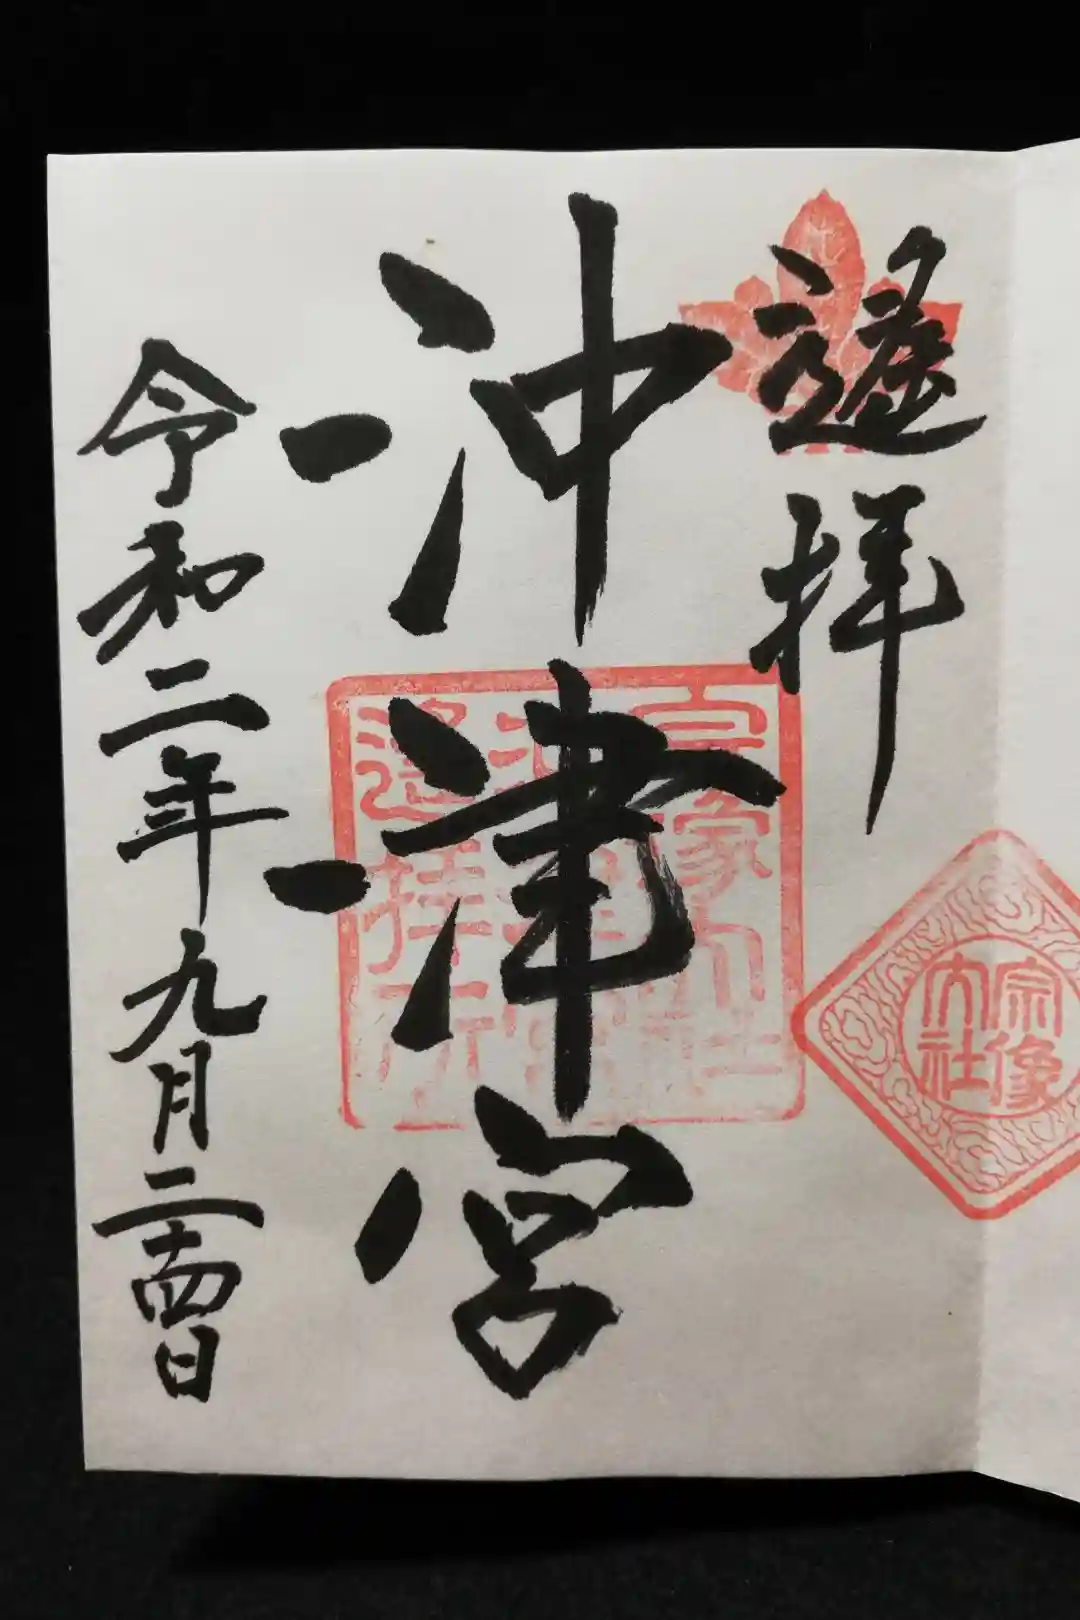 遥拝
沖津宮
令和二年九月二十四日
宗像大社
沖津宮
遥拝所
宗像
大社